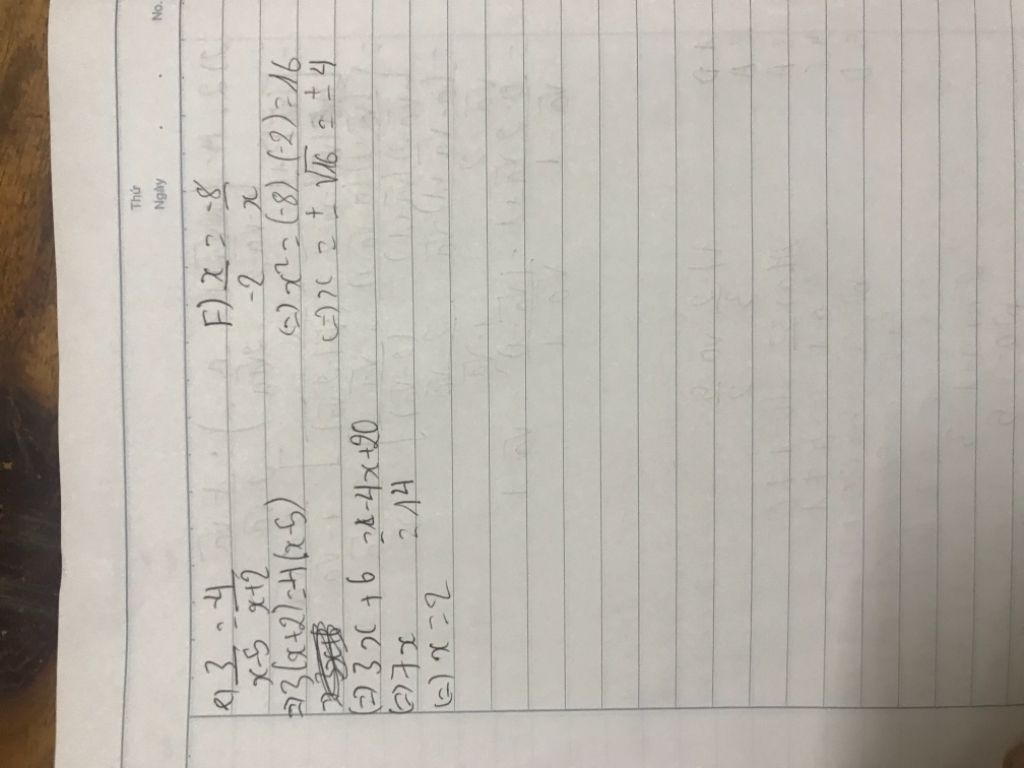 No.
Thứ
Ngày
e) 3/x-5 = -4/x+2
=> 3(x+2) = -4(x-5)
(=) 3x + 6 = -4x+20
(=) 7x = 14
(=) x = 2
F) x/-2 = -8/x
(=) x² = (-8) (-2) = 16
(=) x = ± √16 = ± 4